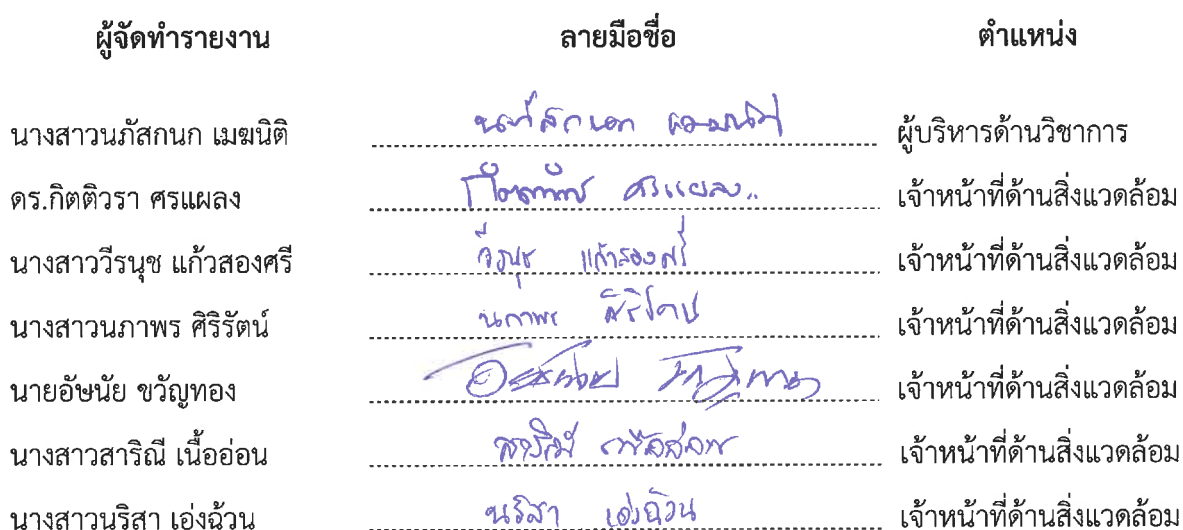 ผู้จัดทำรายงาน ลายมือชื่อ ตำแหน่ง
นางสาวนภัสกนก เมฆนิติ ผู้บริหารด้านวิชาการ
ดร.กิตติวรา ศรแผลง ศรแผลง เจ้าหน้าที่ด้านสิ่งแวดล้อม
นางสาววีรนุช แก้วสองศรี วีรนุช แก้วสองศรี เจ้าหน้าที่ด้านสิ่งแวดล้อม
นางสาวนภาพร ศิริรัตน์ นภาพร เจ้าหน้าที่ด้านสิ่งแวดล้อม
นายอัษนัย ขวัญทอง เจ้าหน้าที่ด้านสิ่งแวดล้อม
นางสาวสาริณี เนื้ออ่อน เจ้าหน้าที่ด้านสิ่งแวดล้อม
นางสาวนริสา เอ่งฉ้วน นริสา เอ่งฉ้วน เจ้าหน้าที่ด้านสิ่งแวดล้อม